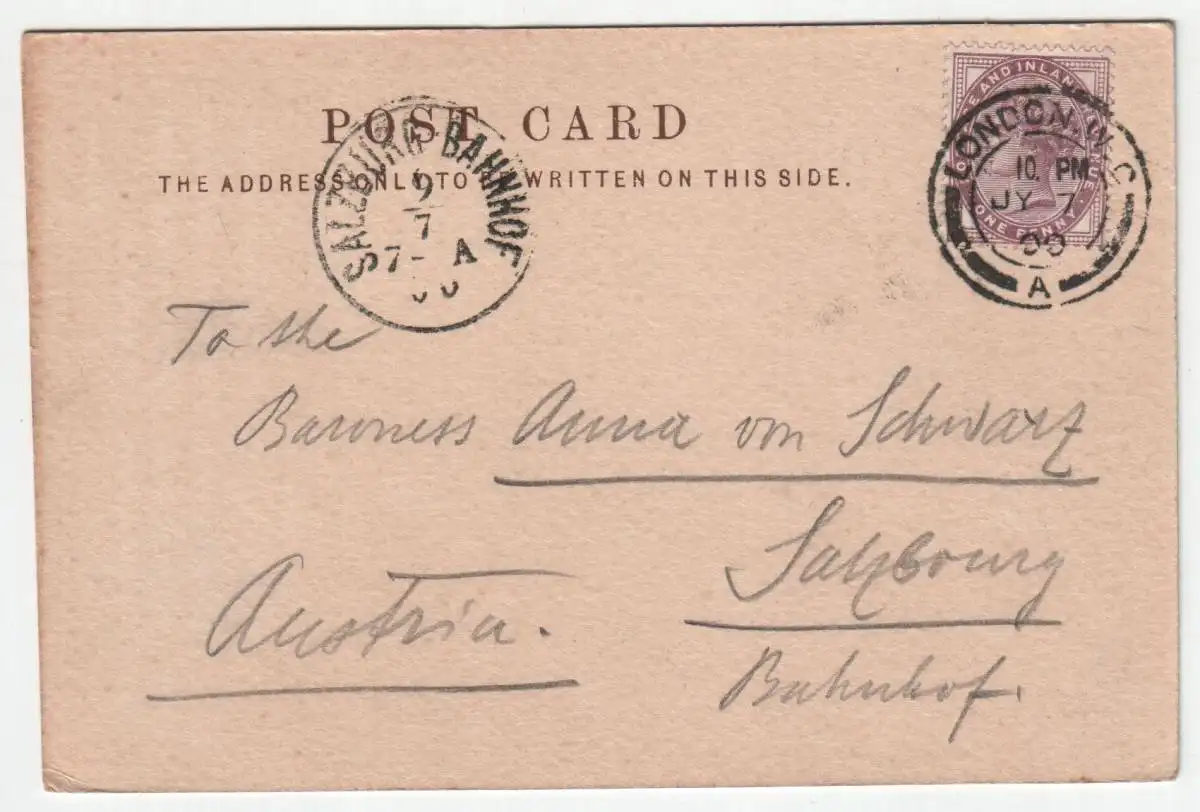 POST CARD
THE ADDRESS ONLY TO WRITTEN ON THIS SIDE.
SALZBURG BAHNHOF
9
7
7- A
00
AND INLAN
ONE PENNY
LONDON. W.C
10. PM
JY 7
00
A
To the
Baroness Anna von Schwarz
Salzbourg
Austria.
Bahnhof.